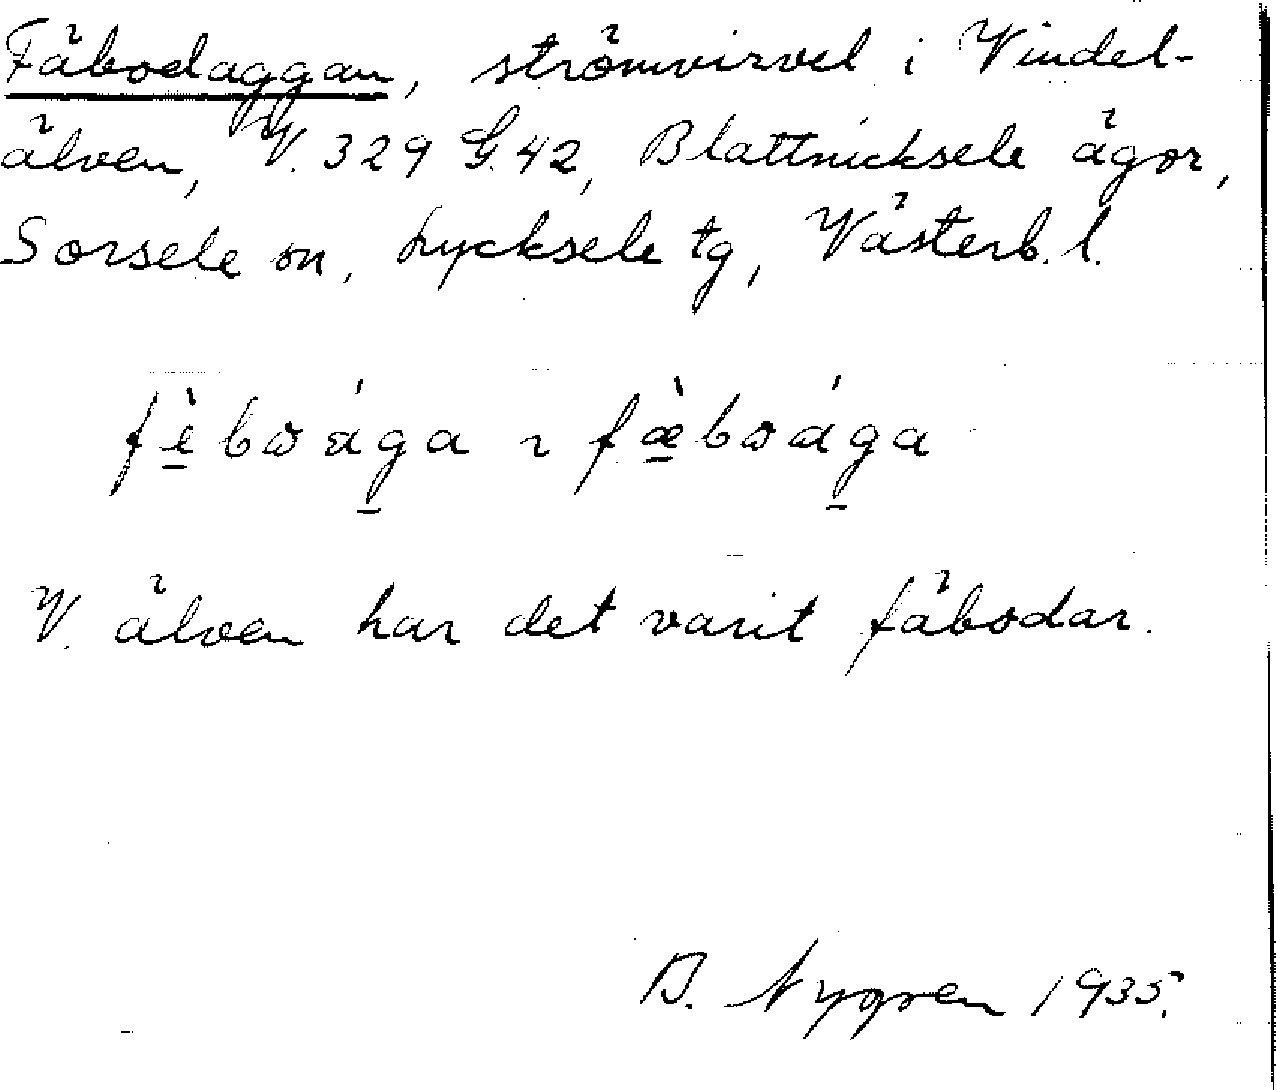 Fäbodaggan, strömvirvel i Vindel-
älven, V. 329 G. 42, Blattnicksele ägor,
Sorsele sn, Lycksele tg, Västerb. l.
fè̱bωág̱a ~ fæ̱̀bωág̱a
V. älven har det varit fäbodar.
B. Nygren 1935.